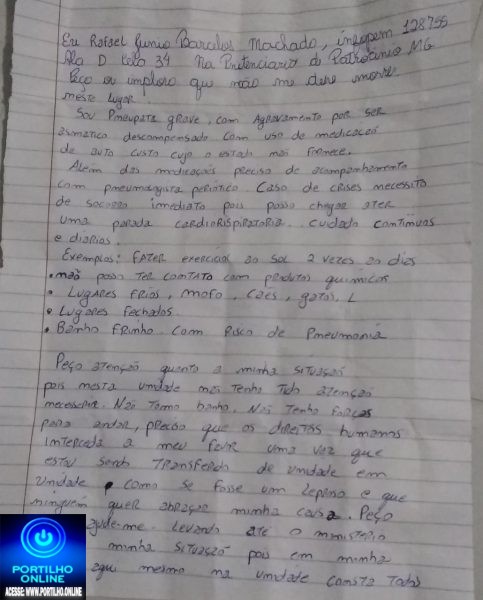 Eu Rafael Junio Barcelos Machado, infopem 128755
Ala D cela 34 Na Pnitenciaria de Patrocinio MG
Peço ou imploro que não me deixe morre
neste lugar
Sou Pneupata grave, com Agravamento por SER
asmatico descompensado com uso de medicação
de auto custo cujo o estado não fornece.
Alem das medicação preciso de acompanhamento
com pneumologista periótico. Caso de crises necessito
de socorro imediato pois posso chegar ater
uma parada cardiorispiratoria. cuidado continuas
e diarias.
Exemplos: FAZER exercicios ao sol 2 vezes ao dias
• não posso TER CONTATO com produtos quimicos
• LUGARES FRIOS, mofo, cães, gatos, L
• Lugares fechados.
• Banho FRINHO com Risco de Pneumonia
Peço atenção quanto a minha situação
pois nesta unidade não Tenho Tido atenção
necessaria. Não Tomo banho, Não Tenho forças
para andar, preciso que os direitos humanos
interceda a meu favor uma vez que
estou sendo TRANSFERIDO de unidade em
unidade como se fosse um leproso e que
ninguém quer abraçar minha causa. Peço
ajude-me. Levando até o ministerio
minha situação pois em minha
aqui mesmo na unidade consta Todos
PORTILHO
ONLINE
ACESSE: WWW.PORTILHO.ONLINE